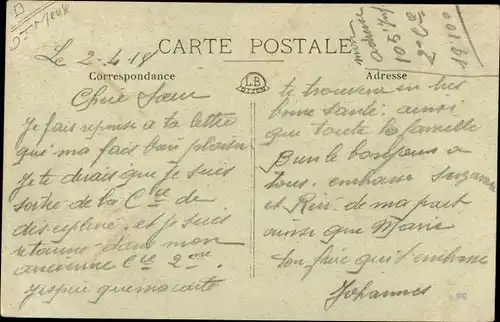 St Meux
Le 2-4-18
CARTE POSTALE
mon
adresse
105 Inf
2e Cie
SP 100
Correspondance
LB
DIJON
Adresse
Chere Soeur
Je fais reponse a ta lettre
qui ma fais bien plaisir
Je te dirais que je suis
sortie de la Cie de
descipline et je suis
retourné dans mon
ancienne Cie 2eme
J'espere que ma carte
te trouvera en tres
bonne santé ainsi
que toute la famille
Bien le bonjour a
tous. embrasse Suzanne
et Riri de ma part
ainsi que Marie
Ton frère qui t'embrasse
Johannes
PB